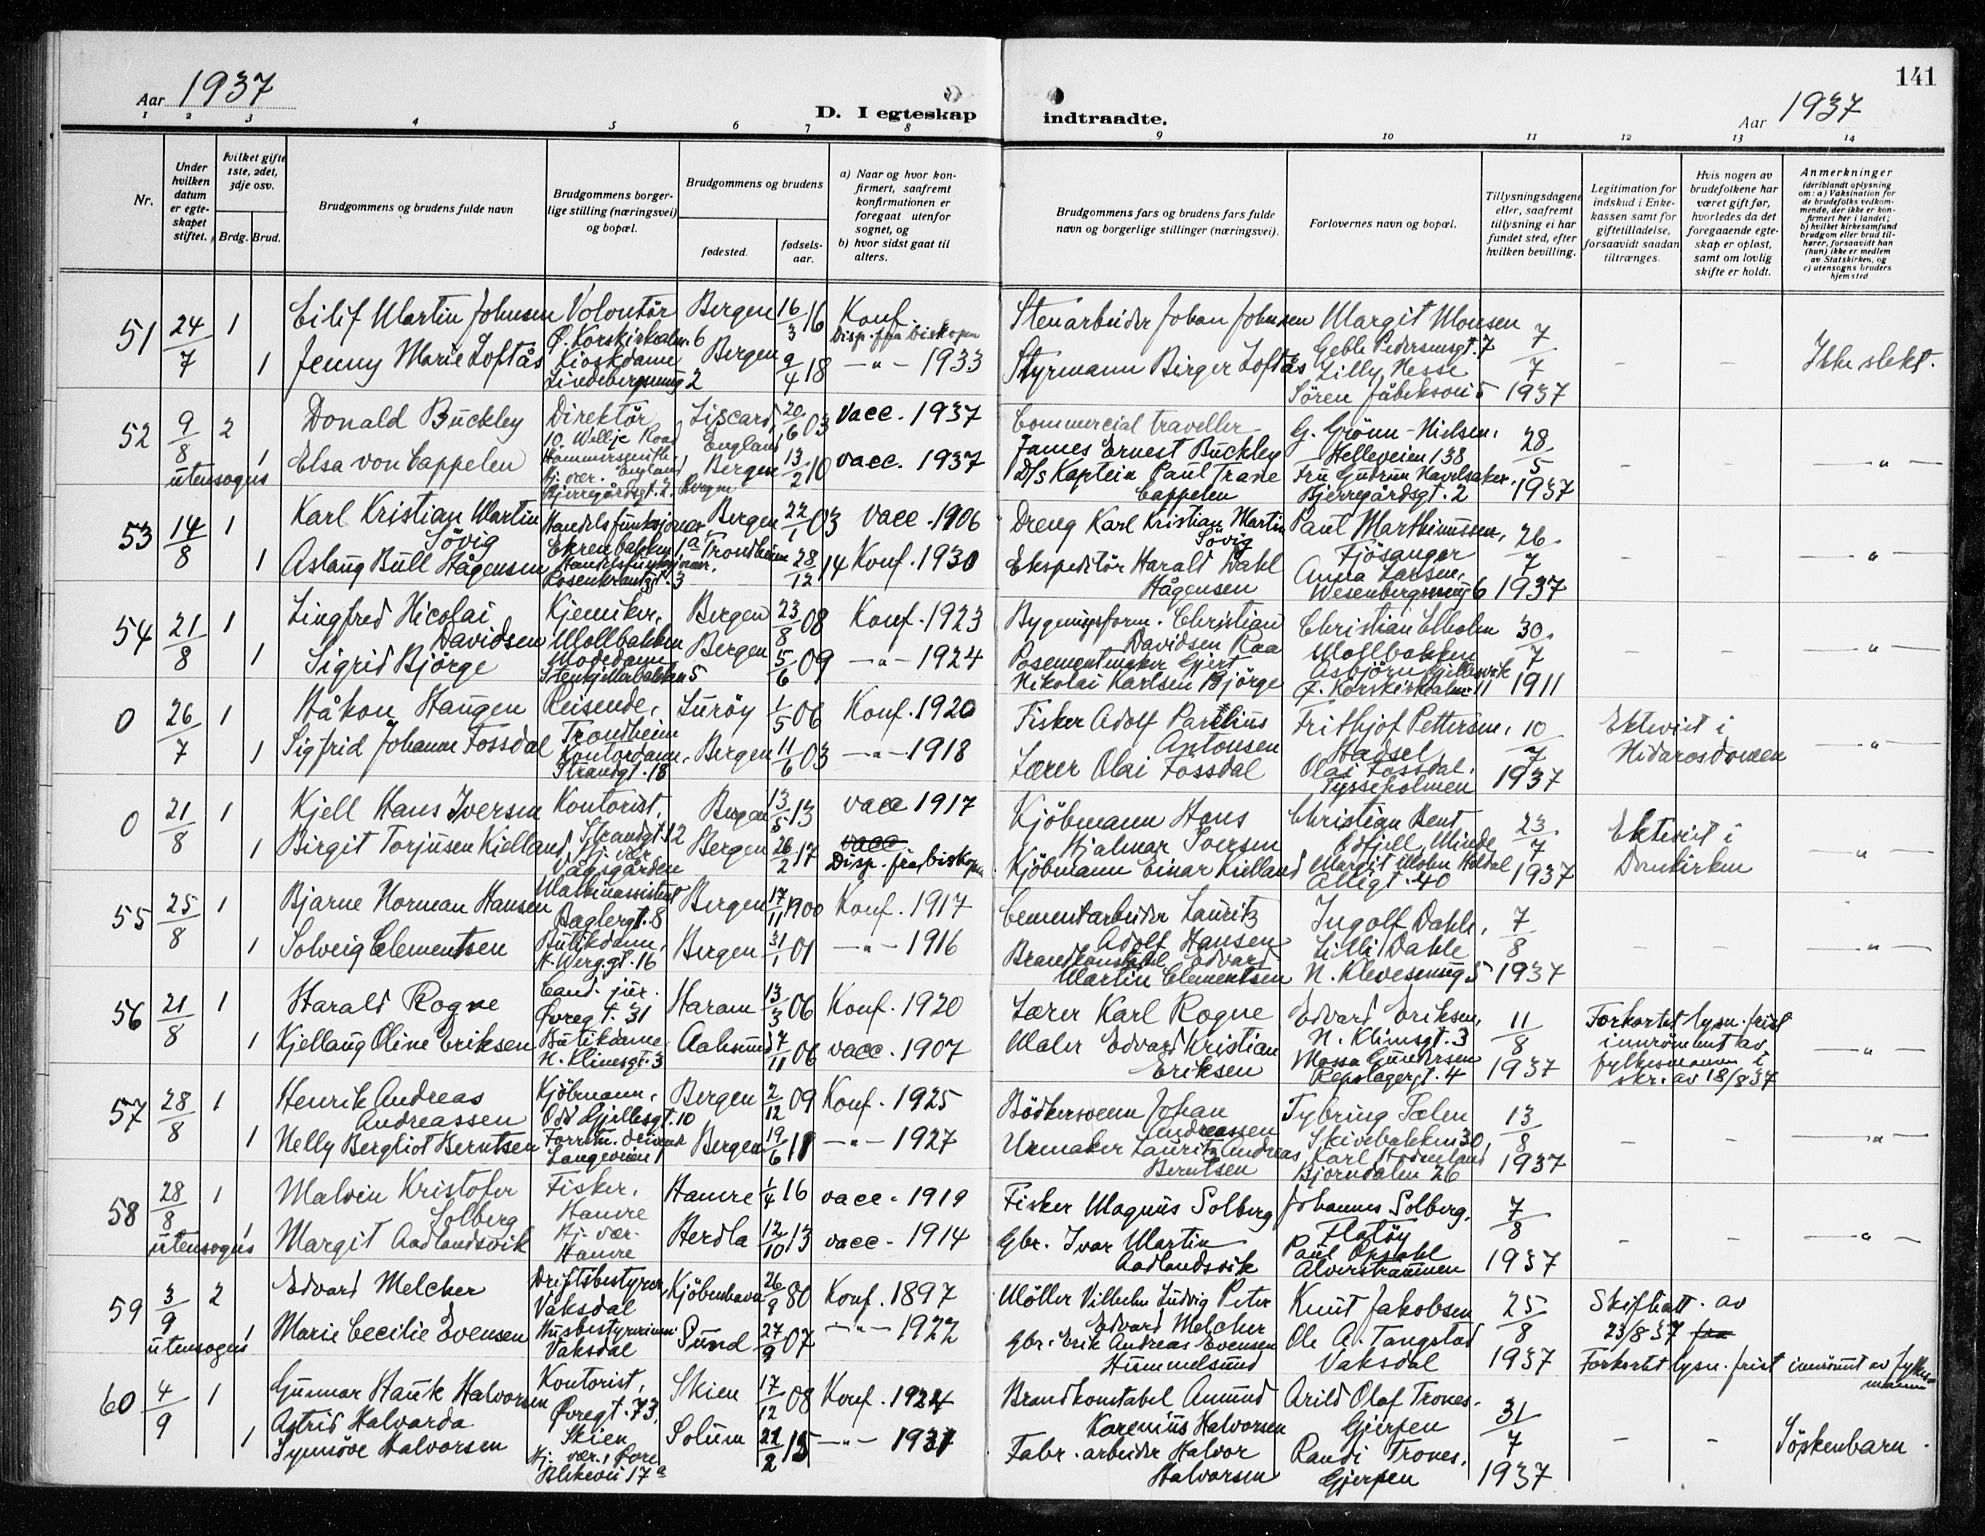 141
Aar 1937
D. I egteskap indtraadte.
Aar 1937
1 2 3 4 5 6 7 8 9 10 11 12 13 14
Nr.
Under hvilken datum er egteskapet stiftet.
hvilket gifte 1ste, 2det, 3dje osv.
Brdg. Brud.
Brudgommens og brudens fulde navn
Brudgommens borgerlige stilling (næringsvei) og bopæl.
Brudgommens og brudens
fødested.
fødselsaar.
a) Naar og hvor konfirmert, saafremt konfirmationen er foregaat utenfor sognet, og
b) hvor sidst gaat til alters.
Brudgommens fars og brudens fars fulde navn og borgerlige stillinger (næringsvei).
Forlovernes navn og bopæl.
Tillysningsdagene eller, saafremt tillysning ei har fundet sted, efter hvilken bevilling.
Legitimation for indskud i Enkekassen samt for giftetilladelse, forsaavidt saadan tiltrænges.
Hvis nogen av brudefolkene har været gift før, hvorledes da det foregaaende egteskap er opløst, samt om lovlig skifte er holdt.
Anmerkninger
(deriblandt oplysning om: a) Vaksination for de brudefolks vedkommende, der ikke er konfirmert her i landet; b) hvilket kirkesamfund brudgom eller brud tilhører, forsaavidt han (hun) ikke er medlem av Statskirken, og c) utensogns bruders hjemsted
51 24/7 1 Eilif Martin Johnsen Volontør Ø. Korskirkealm. 6 Bergen 16/3 16 Konf. Disp. fra biskopen Stenarbeider Johan Johnsen Margit Monsen Geble Pedersensgt. 7 7/7 1937 – – Ikke slekt.
1 Jenny Marie Loftås Kioskdame 2 Bergen 9/4 18 –"– 1933 Styrmann Birger Loftås Lilly Nesse Sören
52 9/8 utensogns 2 Donald Buckley Direktör Liscard, England 20/6 03 vacc. 1937 Commercial traveller James Ernest Buckley G. Grönn-Nielsen, Helleveien 138 28/5 1937 – – –"–
1 Elsa von Cappelen Bjerregårdsgt. 2, Bergen Bergen 13/2 10 vacc. 1937 D/s Kaptein Paul Trane Cappelen Fru Gudrun Bjerregårdsgt. 2
53 14/8 1 Karl Kristian Martin Søvig Handelsfunksjonær Ekrenbakken 1a Bergen 22/1 03 vacc. 1906 Dreng Karl Kristian Martin Søvig Paul Marthinussen, Fjösanger 26/7 1937 – – –"–
1 Aslaug Bull Hågensen Handelsfunksjonær, Rosenkrantzgt. 3 Trondheim 28/12 14 Konf. 1930 Ekspeditör Harald Dahl Hågensen Anna Larsen, Wesenbergsmug 6
54 21/8 1 Lingfred Nicolai Davidsen Kjemiker, Mollbakken Bergen 23/8 08 Konf. 1923 Bygningsform. Christian Davidsen Raa Christian Elholm Mollbakken 30/7 1911 – – –"–
1 Sigrid Bjørge Modedame Stenkjellerbakken 5 Bergen 5/6 09 –"– 1924 Posementmaker Gjert Nikolai Karlsen Bjørge Asbjörn Ø. Korskirkealm. 11
0 26/7 1 Håkon Haugen Reisende, Trondheim Lurøy 1/5 06 Konf. 1920 Fisker Adolf Parelius Antonsen Frithjof Pettersen, Hadsel 10/7 1937 Ektevirt i Nidarosdomen –"–
1 Sigfrid Johanne Fossdal Kontordame, Strandgt. 18 Bergen 11/6 03 –"– 1918 Lærer Olai Fossdal Olai Fossdal, Tysseholmen
0 21/8 1 Kjell Hans Iversen Kontorist, Strandgt. 12 Bergen 13/5 13 vacc 1917 Kjöbmann Hans Hjalmar Iversen Christian Bent Odfjell, Minde 23/7 1937 Ektevirt i Domkirken –"–
1 Birgit Torjusen Kielland Hj. vær. Vågsgården Bergen 26/2 17 vacc Disp. fra biskopen Kjöbmann Einar Kielland Margit Mohn Holdal Allégt. 40
55 25/8 1 Bjarne Norman Hansen Maskinassistent Baglergt. 8 Bergen 17/11 1900 Konf. 1917 Cementarbeider Lauritz Adolf Hansen Ingolf Dahle, 7/8 1937 – – –"–
1 Solveig Clementsen Butikdame, H. Werg. gt. 16 Bergen 31/1 01 –"– 1916 Brandkonstabel Edvard Martin Clementsen Lilli Dahle N. Klevesmug 5
56 21/8 1 Harald Rogne Cand. jur. Øvregt. 31 Haram 13/3 06 Konf. 1920 Lærer Karl Rogne Edvard Eriksen, N. Klimsgt. 3 11/8 1937 Forkortet lysn. frist innrömmet av fylkesmannen i skr. av 18/8 37 –"–
1 Kjellaug Oline Eriksen Butikdame N. Klimsgt. 3 Aalesund 7/11 06 vacc. 1907 Maler Edvard Kristian Eriksen Mossa Gundersen Repslagergt. 4
57 28/8 1 Henrik Andreas Andreassen Kjöbmann, Odd Gjellesgt. 10 Bergen 2/12 09 Konf. 1925 Bödkersvenn Johan Andreassen Tybring Sælen Skivebakken 30, 13/8 1937 – – –"–
1 Nelly Bergliot Berntsen Langeveien 1 Bergen 19/6 11 –"– 1927 Urmaker Lauritz Andreas Berntsen Karl Bjorndalen 26
58 28/8 utensogns 1 Malvin Kristofer Solberg Fisker, Hamre Hamre 1/4 16 vacc. 1919 Fisker Magnus Solberg Johannes Solberg, Flatøy 7/8 1937 – – –"–
1 Margit Aadlandsvik Hj. vær. Hamre Herdla 12/10 13 vacc. 1914 Gbr. Ivar Martin Aadlandsvik Paul Opdahl Alverstraumen
59 3/9 utensogns 2 Edvard Melcher Driftsbestyrer, Vaksdal Kjöbenhavn 26/9 80 Konf. 1897 Möller Vilhelm Ludvig Peter Edvard Melcher Knut Jakobsen 25/8 1937 Skifteatt. av 23/8 37 fra
1 Marie Cecilie Evensen Husbestyrerinne Vaksdal Sund 27/9 07 –"– 1922 Gbr. Erik Andreas Evensen Hummelsund Ole A. Tangstad Vaksdal Forkortet lysn. frist innrömmet av fylkesmannen
60 4/9 1 Gunnar Hauk Halvorsen Kontorist, Øvregt. 73, Skien Skien 17/12 08 Konf. 1924 Brandkonstabel Amund Karenius Halvorsen Arild Olaf Trones. Gjerpen 31/7 1937 – – Søskenbarn.
1 Astrid Halvarda Synnöve Halvorsen Hj. vær., Øvre Blekevei 17a Solum 22/2 15 –"– 1931 Fabr. arbeider Halvor Halvorsen Randi Trones, Gjerpen